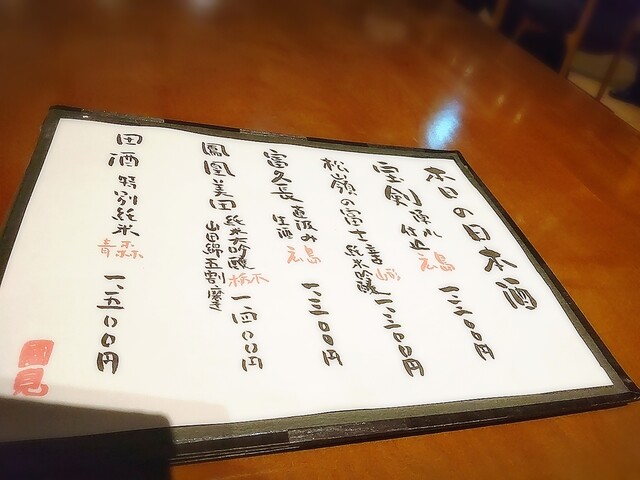 本日の日本酒
宝剣 涼風 仕込 広島 一、二〇〇円
松嶺の富士 純米吟醸 山形 一、二〇〇円
富久長 直汲み 生酒 広島 一、二〇〇円
鳳凰美田 純米大吟醸 山田錦五割磨き 栃木 一、四〇〇円
田酒 特別純米 青森 一、五〇〇円
國見